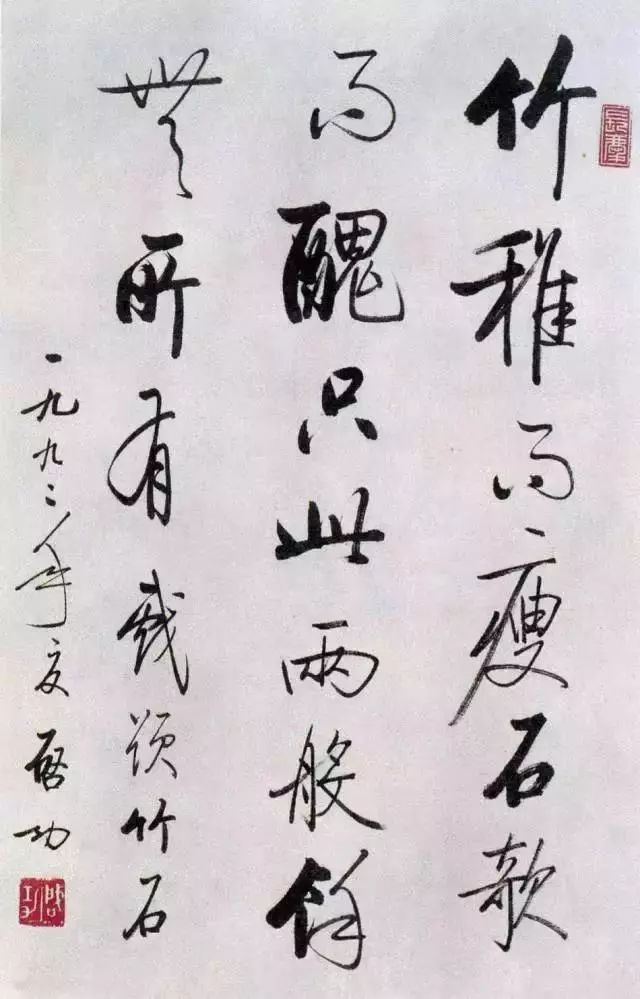 竹稚而瘦石欹
而醜只此兩般餘
無所有戲題竹石
一九九二年夏啟功
啟功